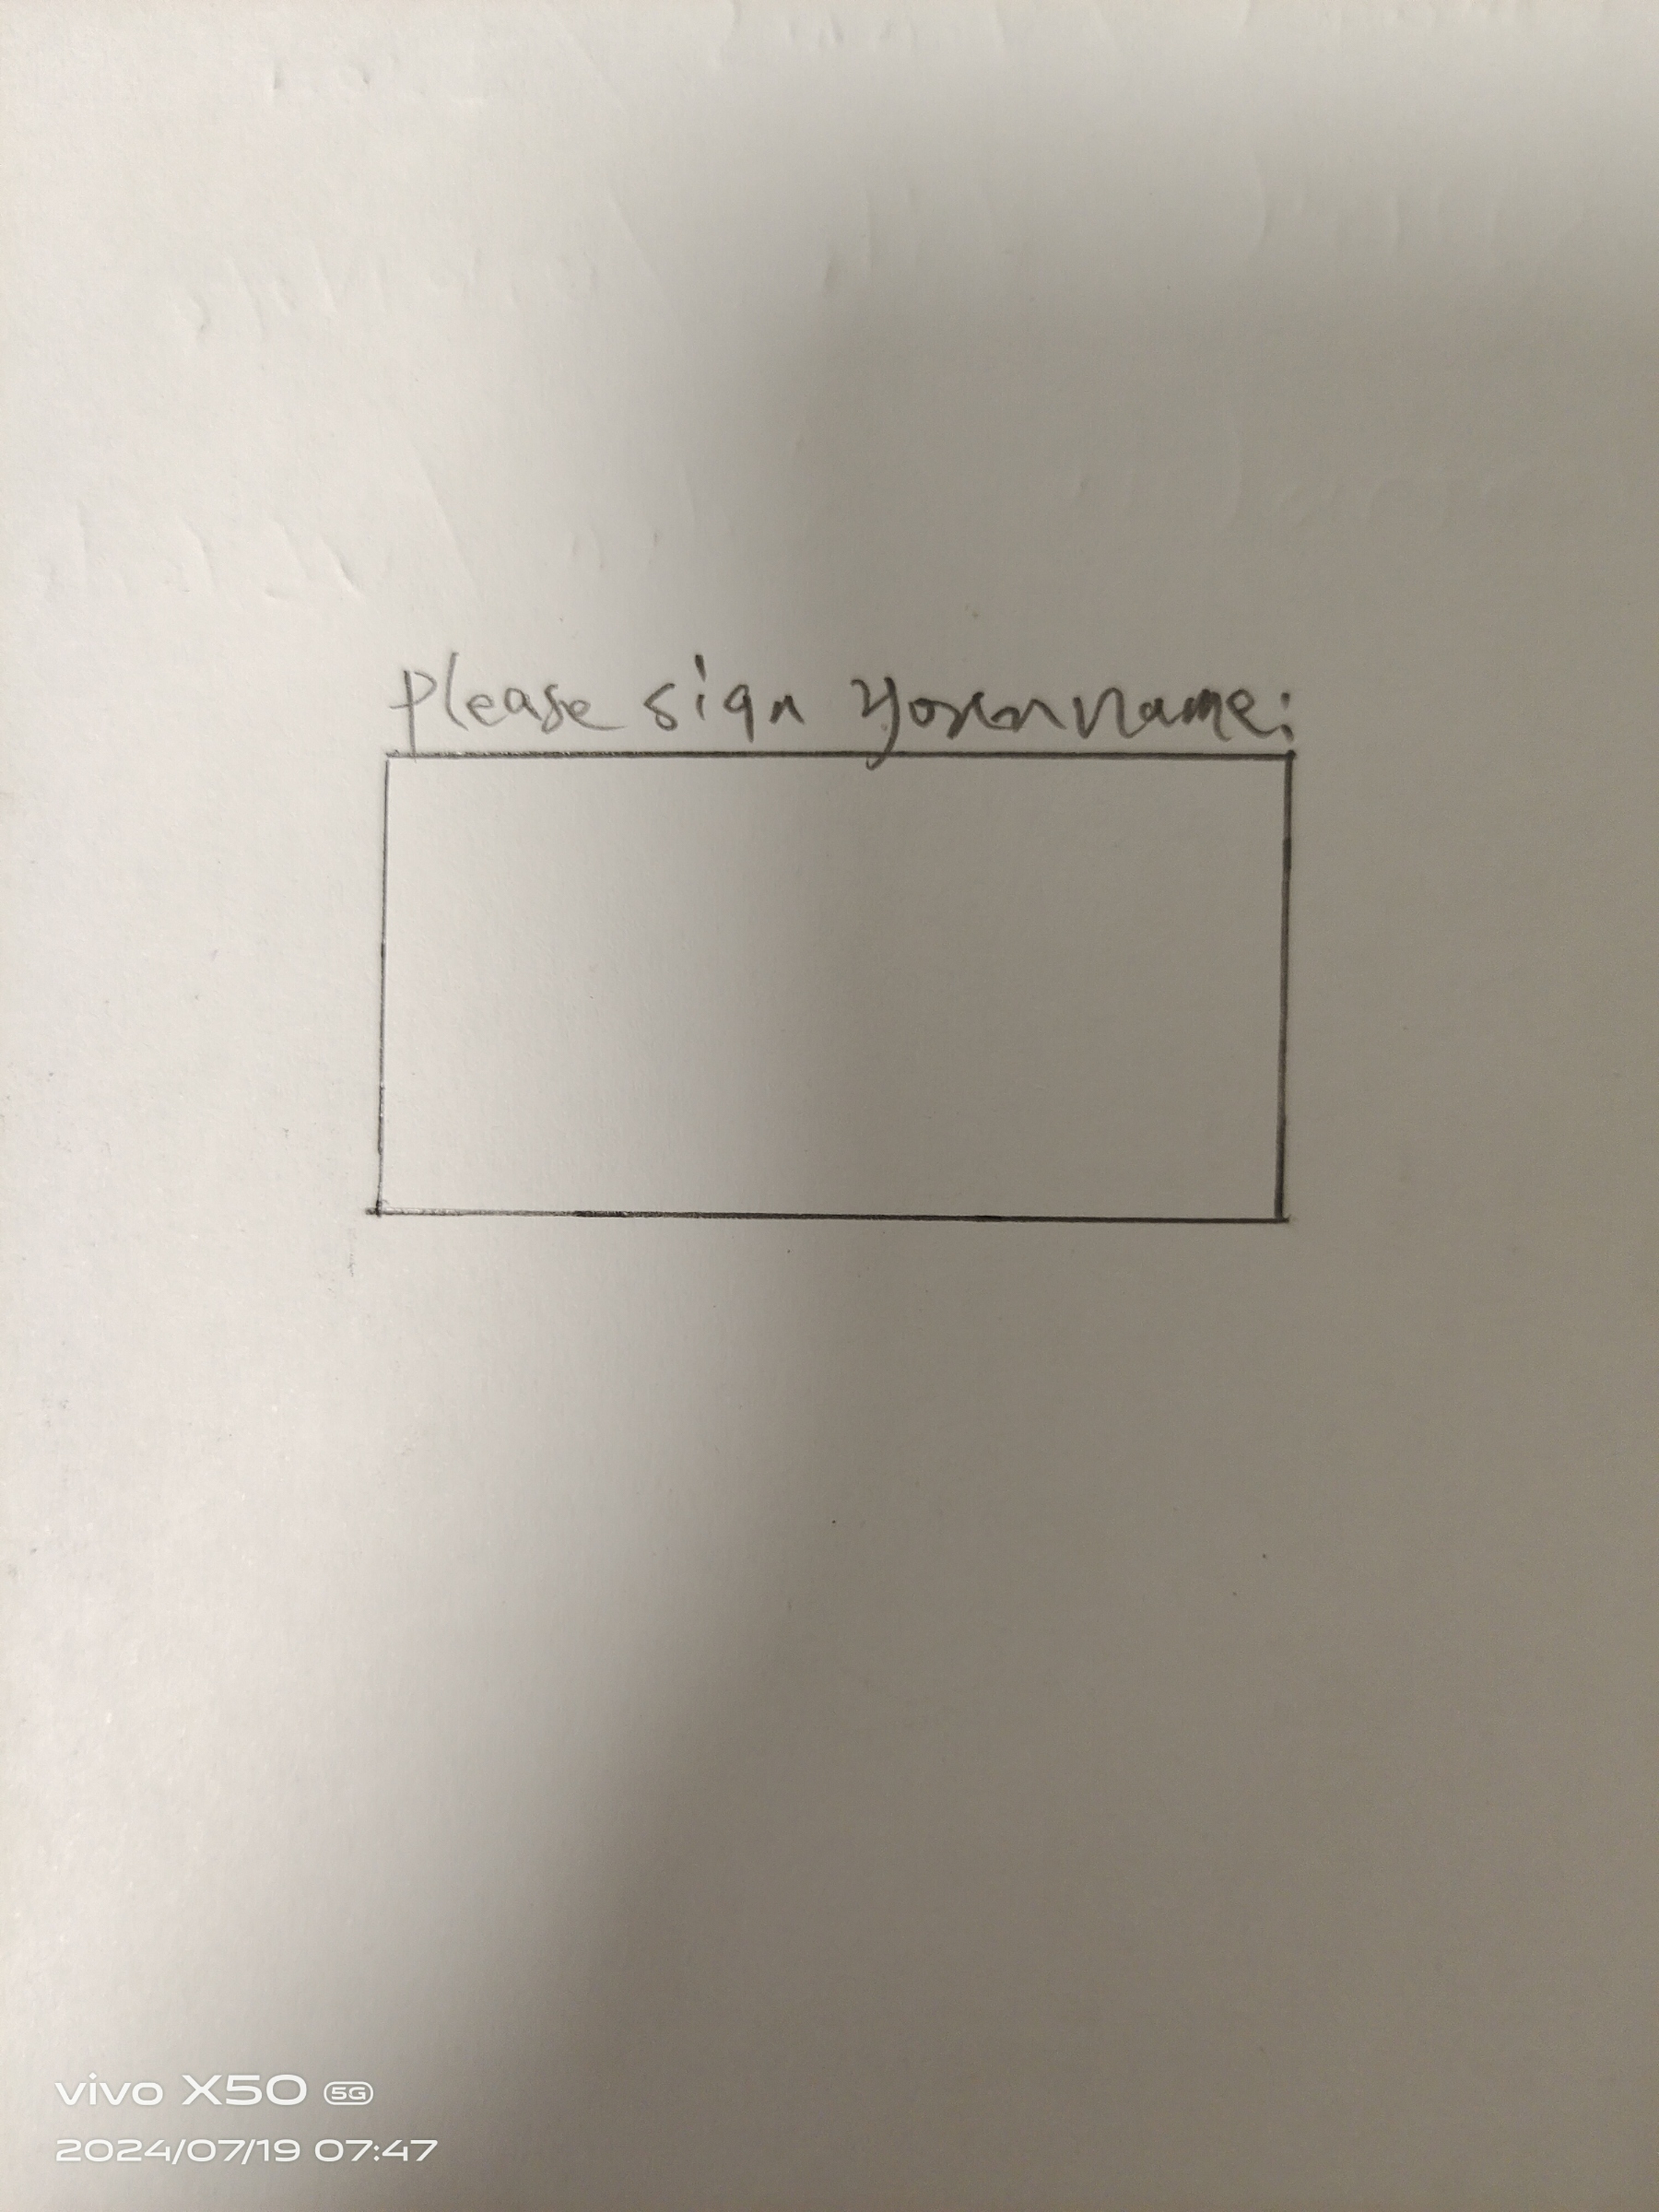 please sign your name:
vivo X50 5G
2024/07/19 07:47